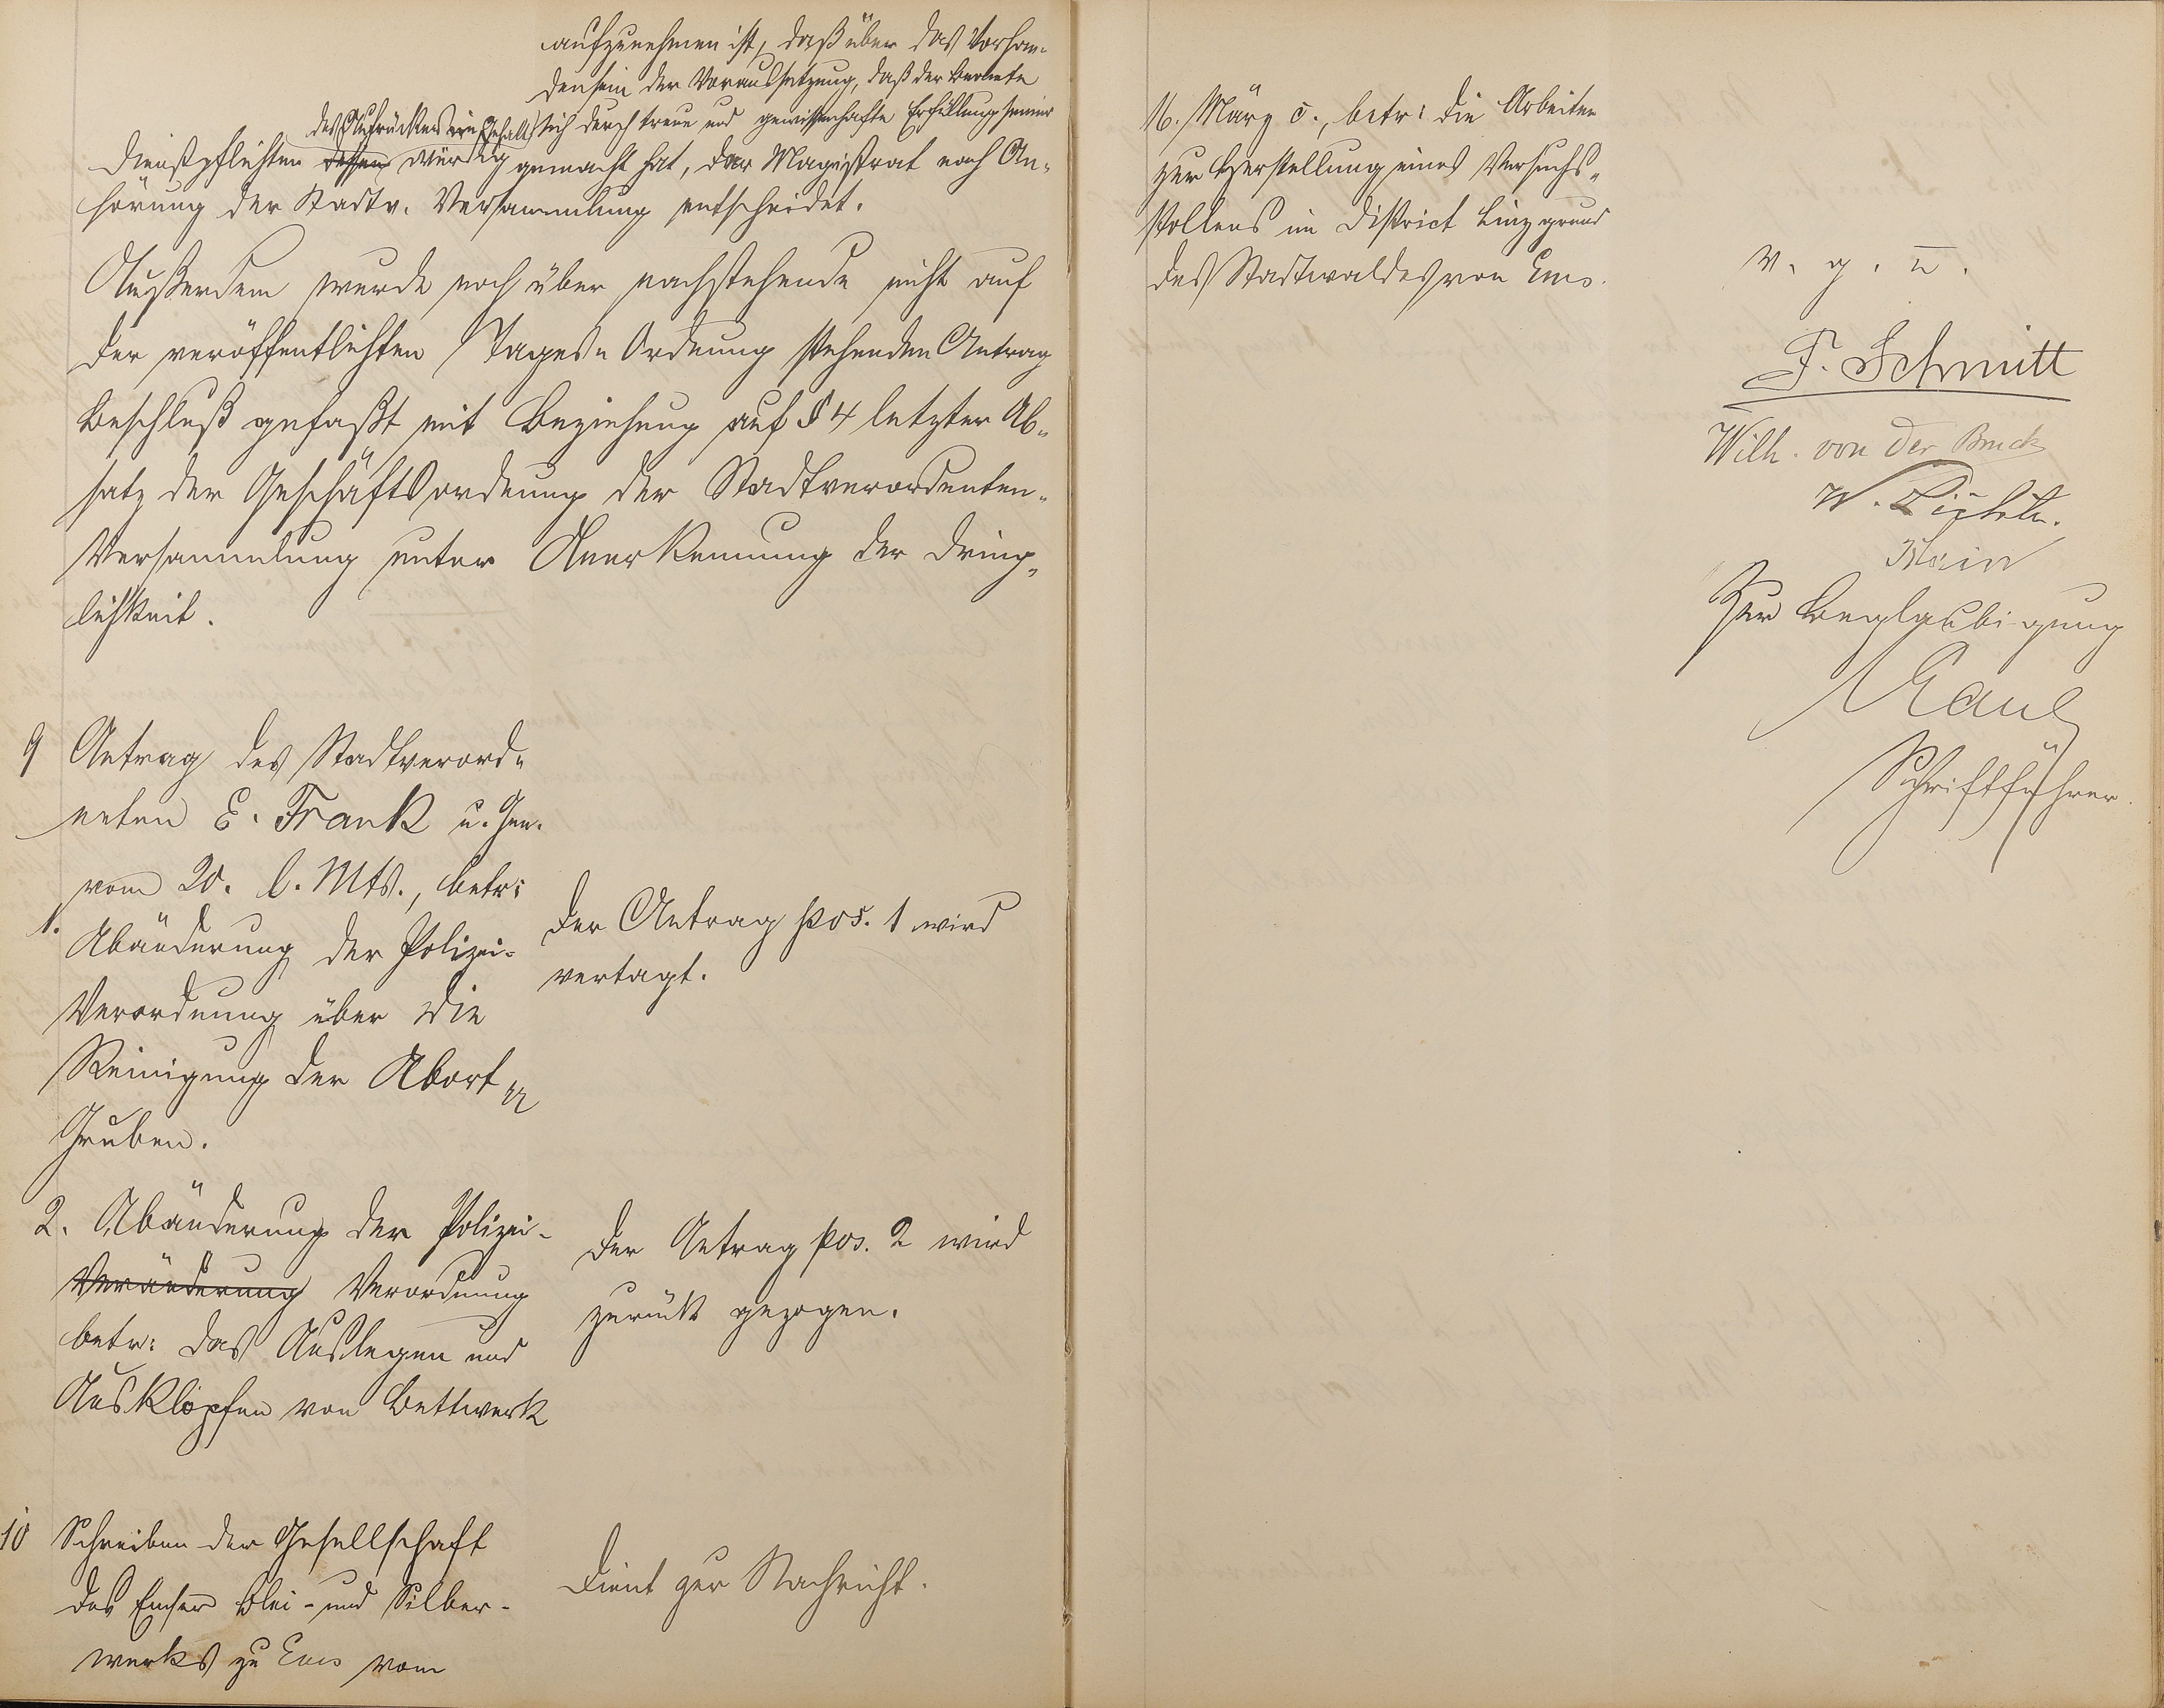 aufzunehmen ist, daß über das Vorhan-
densein der Voraussetzung, daß der Beamte
sich durch treue und gewissenhafte Erfüllung seiner
des Aufrückens im Gehalt
Dienstpflichten dessen würdig gemacht hat, der Magistrat nach An-
hörung der Stadtv. Versammlung entscheidet.
Außerdem wurde noch über nachstehende nicht auf
der veröffentlichten Tages-Ordnung stehenden Antrag
Beschluß gefaßt mit Beziehung auf § 4 letzter Ab-
satz der Geschäftsordnung der Stadtverordneten-
Versammlung unter Anerkennung der Dring-
lichkeit.
9 Antrag des Stadtverord-
neten E. Frank u. Gen.
vom 20. l. Mts., betr:
1. Abänderung der Polizei-
Verordnung über die
Reinigung der Abort-
Gruben.
Der Antrag pos. 1 wird
vertagt.
2. Abänderung der Polizei-
Veränderung Verordnung
betr: das Auslegen und
Ausklopfen von Bettwerk
Der Antrag pos. 2 wird
zurück gezogen.
10 Schreiben der Gesellschaft
des Emser Blei- und Silber-
werks zu Ems vom
Dient zur Nachricht.
16. März c., betr: die Arbeiten
zur Herstellung eines Versuchs-
stollens im District Linzgrund
des Stadtwaldes von Ems.
v. g. u.
F. Schmitt
Wilh. von der Bruck
W.
Zur Beglaubigung
Kaul
Schriftführer.